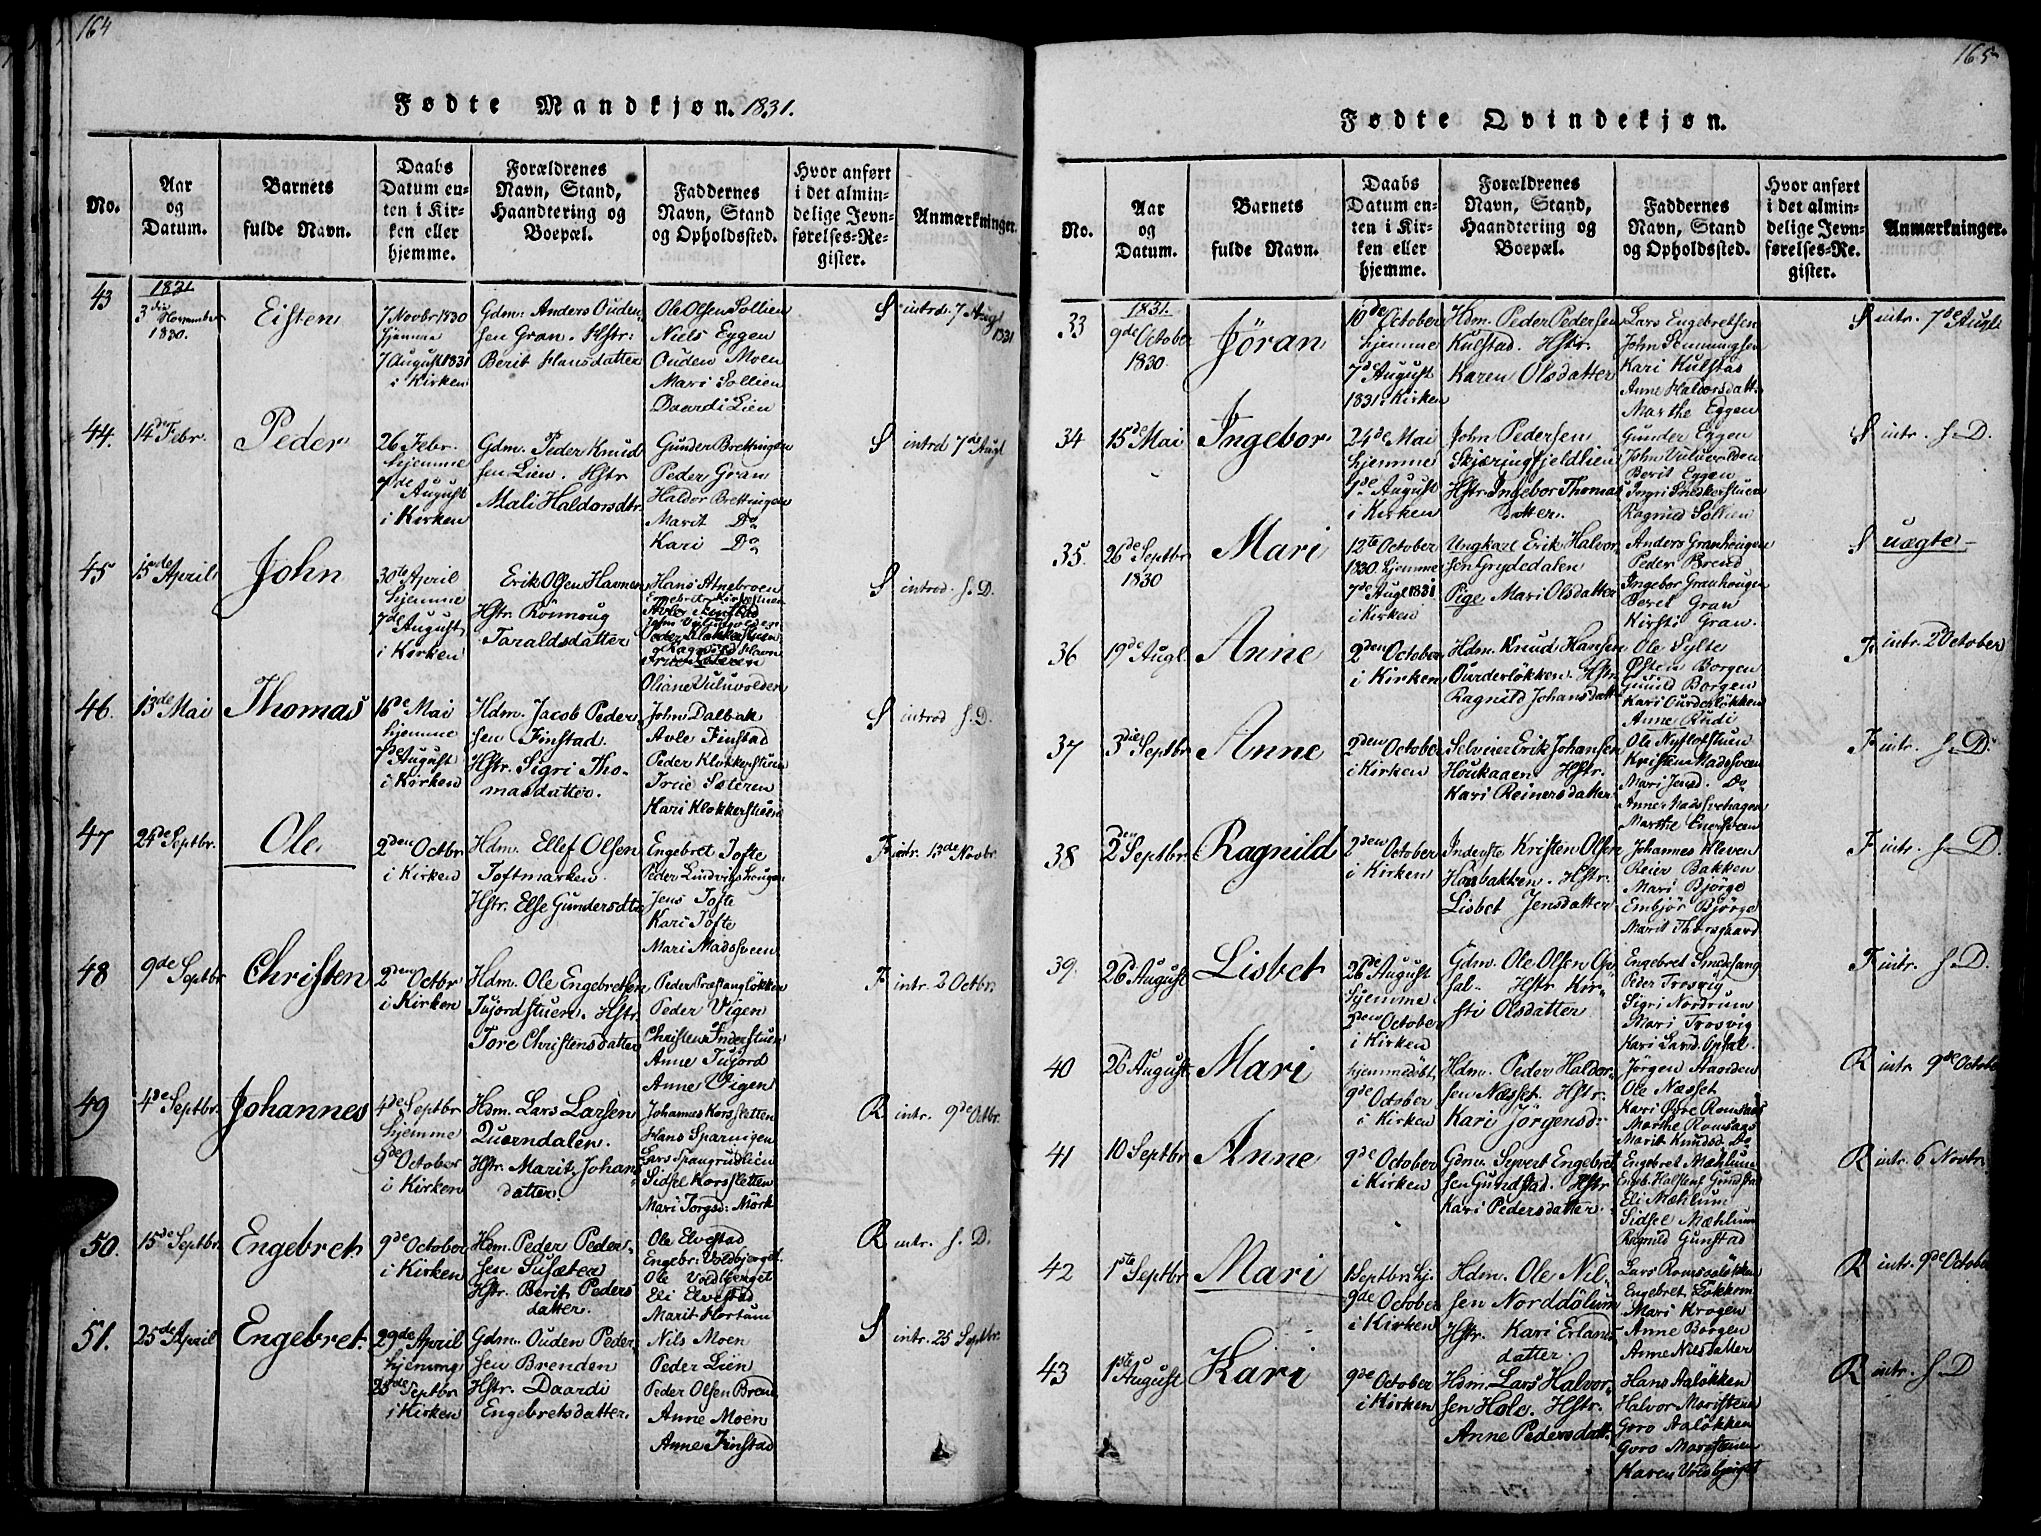 164
Fødte Mandkjøn. 1831.
No.
Aar
og
Datum.
Barnets
fulde Navn.
Daabs
Datum en-
ten i Kir-
ken eller
hjemme.
Forældrenes
Navn, Stand,
Haandtering og
Boepæl.
Faddernes
Navn, Stand
og Opholdssted.
Hvor anført
i det almin-
delige Jevn-
førelses-Re-
gister.
Anmærkninger.
43
1831
3die November
1830.
Eisten
7 Novbr 1830
hjemme
7 August 1831
i Kirken
Gdm: Anders Ouden
sen Gran. Hstr:
Berit Hansdatter
Ole Olsen Sollien
Niels Eggen
Ouden Moen
Mari Sollien
Daardi Lien
S
introd. 7 Augl
1831
44.
14de Febr.
Peder
26 Febr.
hjemme
7de August
i Kirken
Gdm. Peder Knud
sen Lien. Hstr
Mali Haldorsdtr.
Gunder Brettingen
Peder Gran
Haldor Brettingen
Marit Do
Kari Do
S
introd 7de Augl
45
15de April
John
30te April
hjemme
7de August
i Kirken
Erik Olsen Havnen
Hstr. Rönnoug
Taraldsdatter
Hans Atnebroen
Peder Klokkerstuen
Oliane Vuluvolden
S
introd. s. D.
46.
13de Mai
Thomas
16de Mai
hjemme
7de August
i Kirken
Hdm. Jacob Peder
sen Finstad.
Hstr. Sigri Tho-
masdatter.
John Dalbak
Avle Finstad
Peder Klokkerstuen
Trie Sateren
Kari Klokkerstuen
S
introd s. D.
47
24de Septbr.
Ole
2den Octbr.
i Kirken
Hdm. Ellef Olsen
Toftmarken.
Hstr. Else Gundersdtr
Engebret Tofte
Peder Lindvigshougen
Jens Tofte
Kari Tofte
Mari Madssveen
F
intr. 13de Novbr.
48
9de Septbr
Christen
2den Octbr
i Kirken
Hdm. Ole Engebretsen
Tujordstuen. Hstr.
Tore Christensdatter
Peder Præstangløkken
Peder Vigen
Christen Inderstuen
Anne Tujord
Anne Vigen
F
intr. 2 Octbr.
49
4de Septbr.
Johannes
4de Septbr
hjemme
9de October
i Kirken
Hdm. Lars Larsen
Quærndalen.
Hstr. Marit Johans
datter.
Johannes Korssletten
Hans Sparvigen
Lars Spangrudlien
Sidsel Korssletten
Mari Torgsd: Mörk
R
intr. 9de Octbr.
50.
15de Septbr.
Engebret
9de October
i Kirken
Hdm. Peder Peders-
sen Susæter
Hstr. Berit Peders
datter.
Ole Elvestad
Engebr: Voldbjerget.
Ole Voldbjerget
Eli Elvestad
Marit Hortum
R
intr. s. D.
51.
25de April
Engebret.
29de April
hjemme
25de Septbr
i Kirken
Gdm. Ouden Peder
sen Brenden
Hstr. Daardi
Engebretsdatter.
Nils Moen
Peder Lien
Peder Olsen Brend
Anne Moen
Anne Finstad
S
intr. 25 Septbr.
165
Fødte Qvindekjøn.
No.
Aar
og
Datum.
Barnets
fulde Navn.
Daabs
Datum en-
ten i Kir-
ken eller
hjemme.
Forældrenes
Navn, Stand,
Haandtering og
Boepæl.
Faddernes
Navn, Stand
og Opholdssted.
Hvor anført
i det almin-
delige Jevn-
førelses-Re-
gister.
Anmærkninger.
33
1831.
9de October
1830.
Jöran
10de October
hjemme
7de August
1831 i Kirken
Hdm. Peder Pedersen
Kulstad. Hstr.
Karen Olsdatter
Lars Engebretsen
John Semmingsen
Kari Kulstad
Anne Halvorsdatt.
Marthe Eggen
S
intr. 7de Augl
34
15de Mai
Ingebor
24de Mai
hjemme
7de August
i Kirken
John Pedersen
Skjæringfjeldlien
Hstr. Ingebor Thomas
datter.
Gunder Eggen
John Vuluvolden
Berit Eggen
Ingri Snekkerstuen
Ragnild Sollien
S
intr. s. D.
35.
26de Septbr
1830
Mari
12te October
1830 hjemme
7de Augl 1831
i Kirken
Ungkarl Erik Halvor
sen Grydedalen
Pige Mari Olsdatter
Anders Granhougen
Peder Brend
Ingebor Granhougen
Beret Gran
Kirsti Gran.
S
uægte
36
19de Augl.
Anne
2den October
i Kirken
Hdm. Knud Hansen
Ourderløkken. Hstr.
Ragnild Johansdatt
Ole Sylte
Östen Borgen
Gunild Borgen
Kari Ourderløkken
Anne Rudi
F
intr. 2 October
37
3die Septbr
Anne
2den October
i Kirken
Selveier Erik Johansen
Houkaaen. Hstr.
Kari Reinersdatter
Ole Nyflotstuen
Kristen Madssveen
Mari Jensd. Do
Anne Madssvehagen
Marthe Enersveen
F
intr. s. D.
38
2den Septbr.
Ragnild
2den October
i Kirken
Inderste Kristen Olsen
Hönsbakken. Hstr.
Lisbet Jensdatter
Johannes Kleven
Reier Bakken
Mari Bjørge
Embjör Bjørge
Marit Thorsgaard
F
intr. s. D.
39.
26de August
Lisbet
26de August
hjemme.
2den October
i Kirken
Gdm. Ole Olsen Op
sal. Hstr Kir-
sti Olsdatter
Engebret Smedsang
Peder Trosvig
Sigri Nordrum
Mari Trosvig
Kari Larsd. Opsal.
F
intr. s. D.
40
26de August
Mari
hjemmedöbt
9de October
i Kirken
Hdm. Peder Haldor-
sen Næsset. Hstr.
Kari Jørgensd:
Jørgen Staarden
Ole Næsset
Kari Øvre Romsaas
Marthe Romsaas
Marit Knudsd. Do
R
intr. 9de October
41
10 Septbr.
Anne
9de October
i Kirken
Gdm. Severt Engebret
sen Gunstad. Hstr
Kari Pedersdatter.
Engebret Mæhlum
Engeb: Halstens: Gunstad
Eli Mæhlum
Sidsel Mæhlum
Ragnild Gunstad
R
intr. 6 Novbr
42
1ste Septbr
Mari
1 Septbr. hj.
9de October
i Kirken
Hdm. Ole Nil-
sen Norddölum
Hstr. Kari Erlands
datter.
Lars Romsaaløkken
Engebret Løkken
Mari Krogen
Anne Borgen
Anne Nilsdatter
R
intr. 9de October
43
1ste August
Kari
9de October
i Kirken
Hdm. Lars Halvor-
sen Hole. Hstr.
Anne Pedersdatt.
Hans Aaløkken
Halvor Maristuen
Goro Aaløkken
Goro Maristuen
Karen Voldbjerget
R
intr. s. D